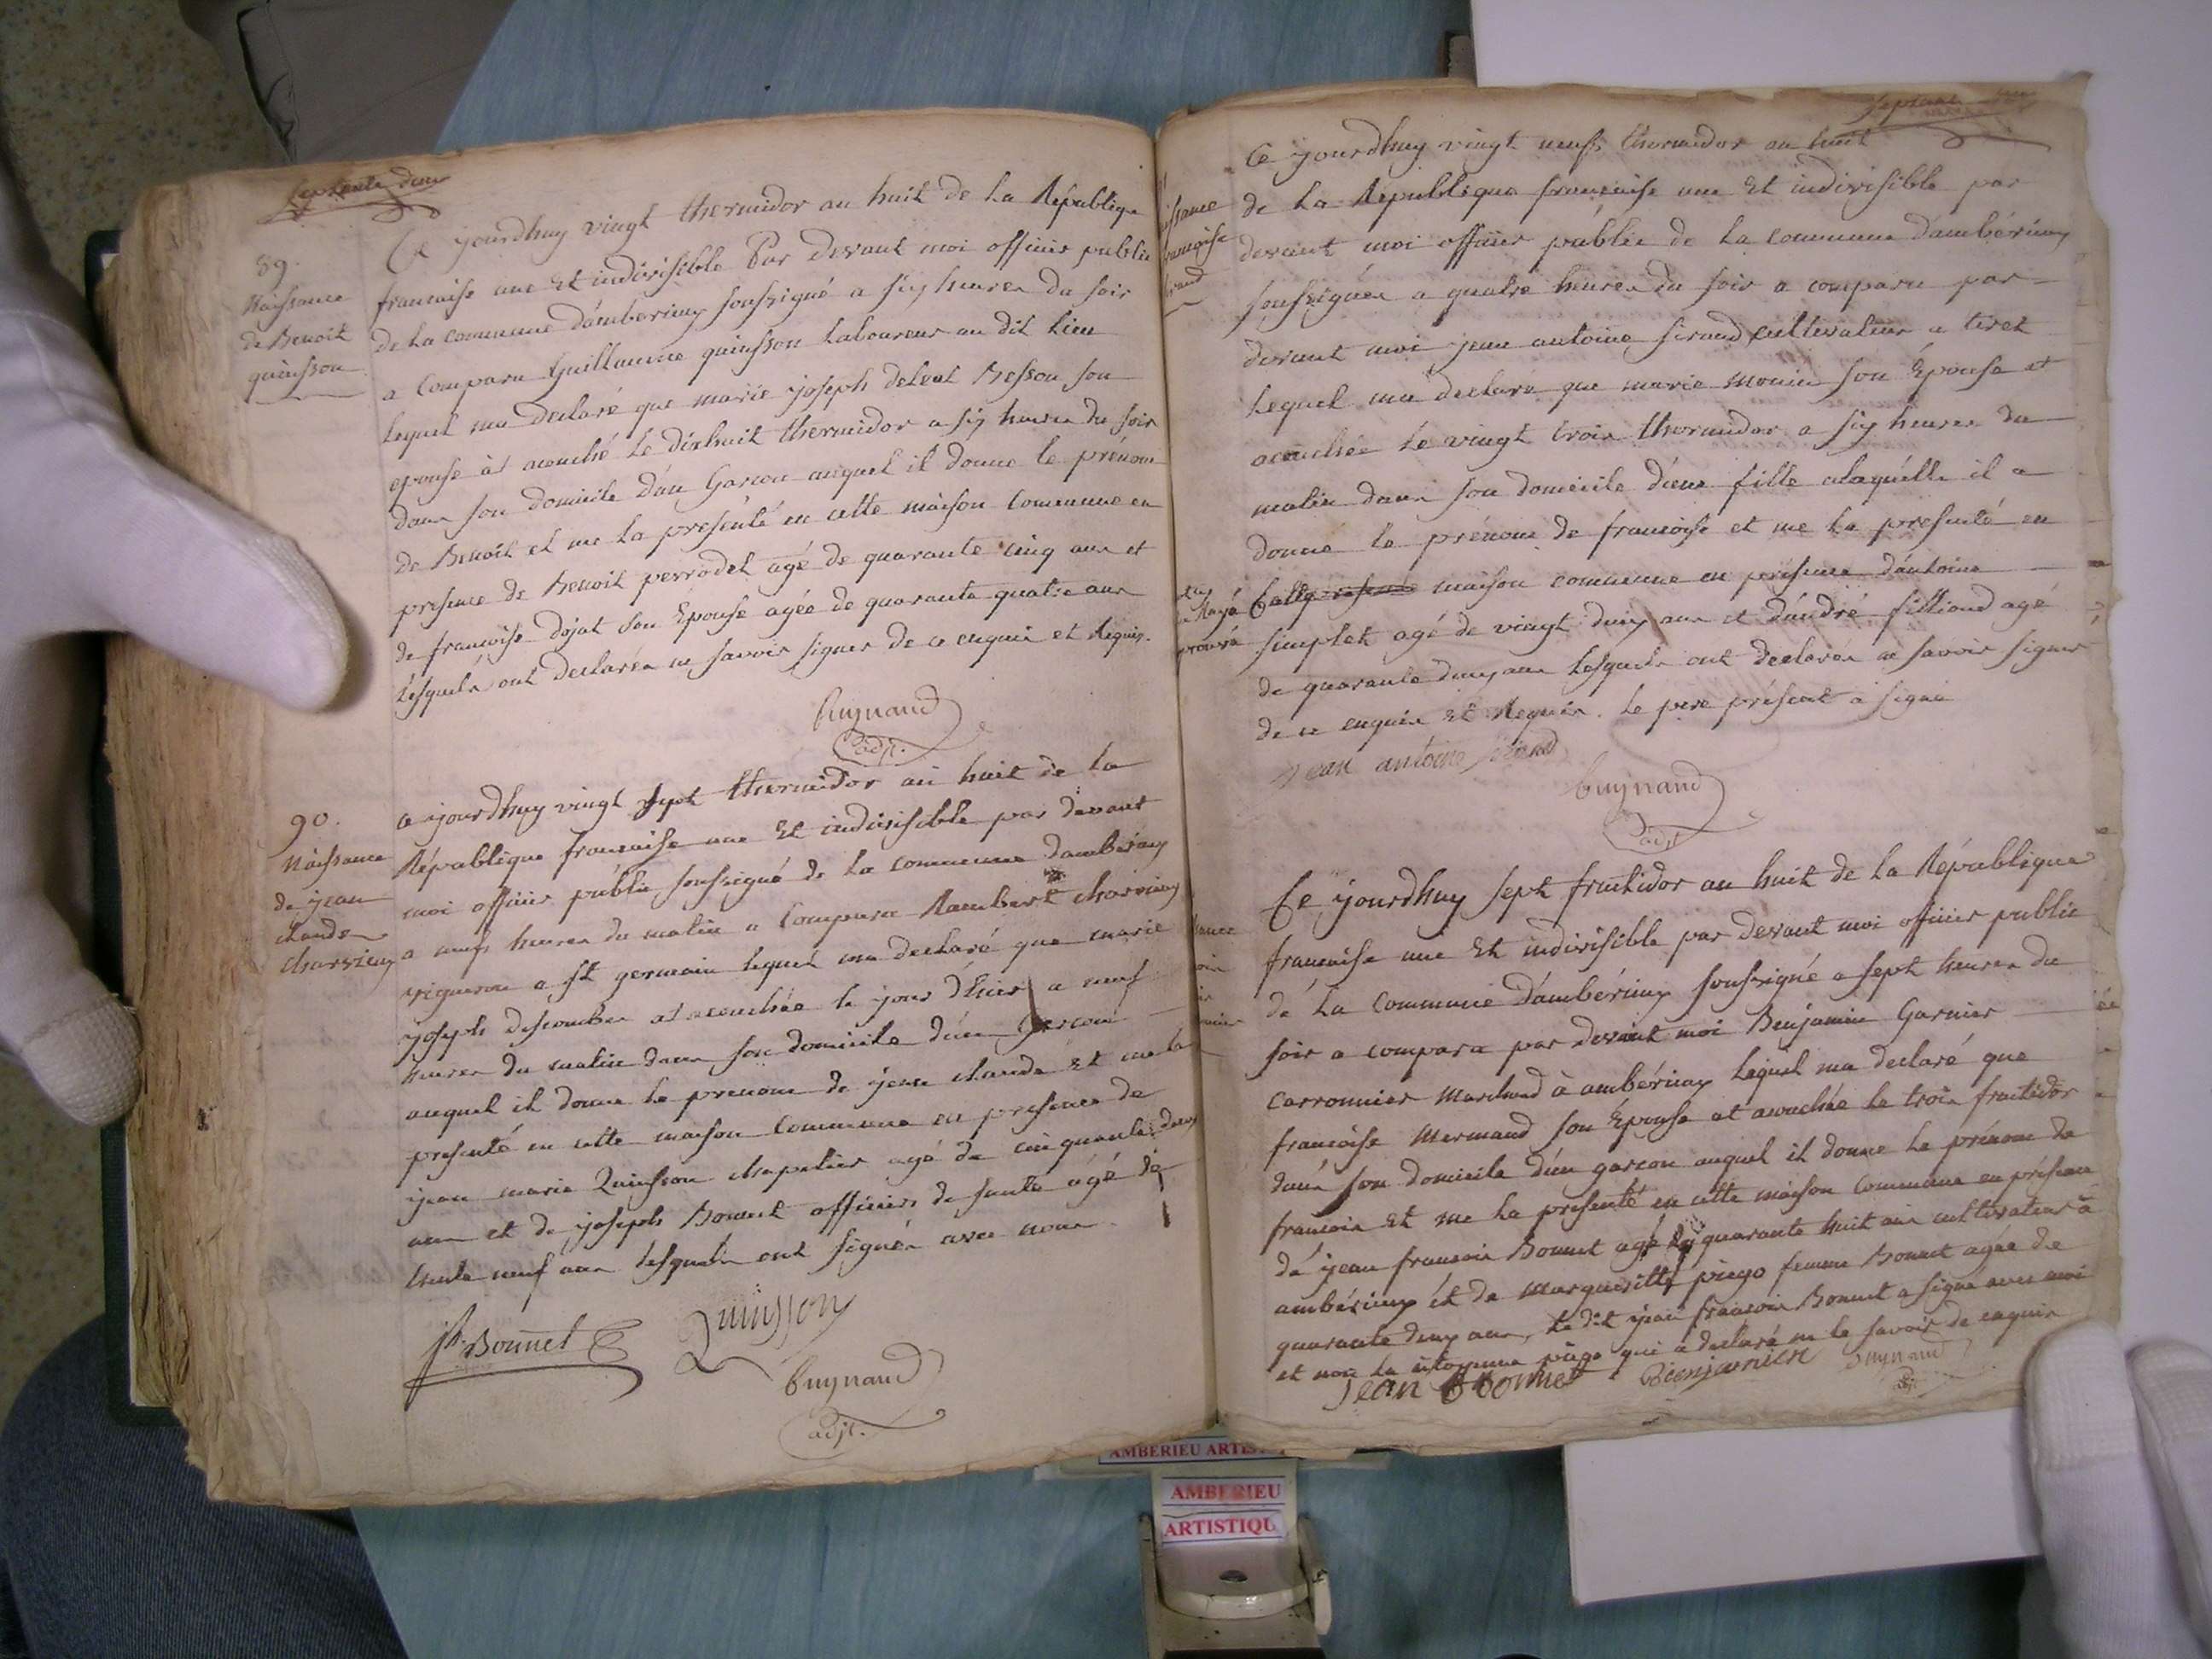 Septante deux
89.
Naissance
de Benoit
quinsson
Ce jourdhuy vingt thermidor an huit de la Republique
francaise une Et indivisible Par devant moi officier public
de la commune d'amberieux soussigné a six heures du soir
a Comparu Guillaume quinsson Laboureur au dit Lieu
Lequel ma declaré que marie joseph Besson son
epouse at acouché Le dixhuit thermidor a six heures du soir
dans son domicile d'un Garcon auquel il donne le prénom
de Benoit et me la presenté en cette maison Commune en
presence de Benoit perrodet agé de quarante cinq ans et
de francoise dojat son Epouse agée de quarante quatre ans
Lesquels ont declarés ne savoir signer de ce enquis et Requis.
buynand
adjt.
90.
Naissance
de jean
claude
charvieux
ce jourdhuy vingt sept thermidor an huit de la
République francaise une Et indivisible par devant
moi officier public soussigné de la commune d'amberieux
a neuf heures du matin a Comparu Rambert charvieux
vigneron a st germain lequel ma declaré que marie
joseph descombes at acouchée le jour d'hier a neuf
heures du matin dans son domicile d'un Garcon
auquel il donne le prenom de jean claude Et me la
presenté en cette maison Commune en presence de
jean marie Quinsson chapelier agé de cinquante deux
ans et de joseph Bonnet officier de santé agé de
trente neuf ans lesquels ont signés avec nous.
jh. Bonnet Quinsson
buynand
adjt.
septante
Ce jourdhuy vingt neuf thermidor an huit
de La Republique francaise une Et indivisible par
devant moi officier public de La commune d'ambérieux
soussignés a quatre heures du soir a comparu par
devant moi jean antoine sirand cultivateur a tiret
Lequel ma declaré que marie monin son Epouse et
acouchée Le vingt trois thermidor a six heures du
matin dans son domicile d'une fille alaquelle il a
donné le prénom de francoise et me la presenté en
maison commune en presence d'antoine
simplet agé de vingt deux ans et d'andré filliond agé
de quarante deux ans Lesquels ont declarés ne savoir signer
de ce enquis Et Requis. Le pere présent a signé
jean antoine sirand
buynand
adjt
Ce jourdhuy sept fructidor an huit de La République
francaise une Et indivisible par devant moi officier public
de La Commune d'ambérieux soussigné a sept heures du
soir a comparu par devant moi Benjamin Garnier
carronnier Marchand à ambérieux Lequel ma declaré que
francoise Mermand son Epouse at acouchée le trois fructidor
dans son domicile d'un garcon auquel il donne Le prénom de
francois Et me La presenté en cette maison Commune en présence
de jean francois Bonnet agé de quarante huit ans cultivateur à
ambérieux et de Margueritte piego femme Bonnet agée de
quarante deux ans, Le dit jean francois Bonnet a signé avec moi
et non La citoyenne piego qui a declaré ne le savoir de enquis
Jean Bonnet buynand
adjt
AMBERIEU
AMBERIEU